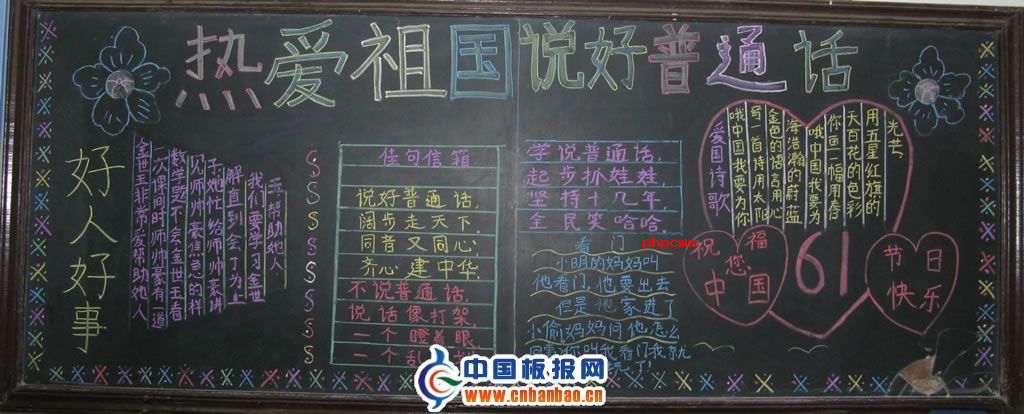 热爱祖国说好普通话
好人好事
金世玉非常爱帮助她人
一次课间时师帅豪有一道
数学题不会金世玉看
见师帅豪焦急的样
子她忙给师帅豪讲
解直到会了为止
我们要学习金世
玉帮助她人
SSSSSSSSS
佳句信箱
说好普通话，
阔步走天下，
同音又同心，
齐心建中华，
不说普通话，
说话像打架，
一个瞪着眼，
一个乱
学说普通话，
起步抓娃娃，
坚持十几年，
全民笑哈哈，
看门
小明的妈妈叫
他看门，他要出去
但是他家进了
小偷妈妈问他怎么
回事你叫我看门我
了！
phpcms
光芒，
用五星红旗的
天百花的色彩
你画一幅用春
哦中国我要为
海浩瀚的蔚蓝
金色的语言用心
写一首诗用太阳
哦中国我要为你
爱国诗歌
祝福
您
中国
61
节日
快乐
中国板报网
www.cnbanbao.cn